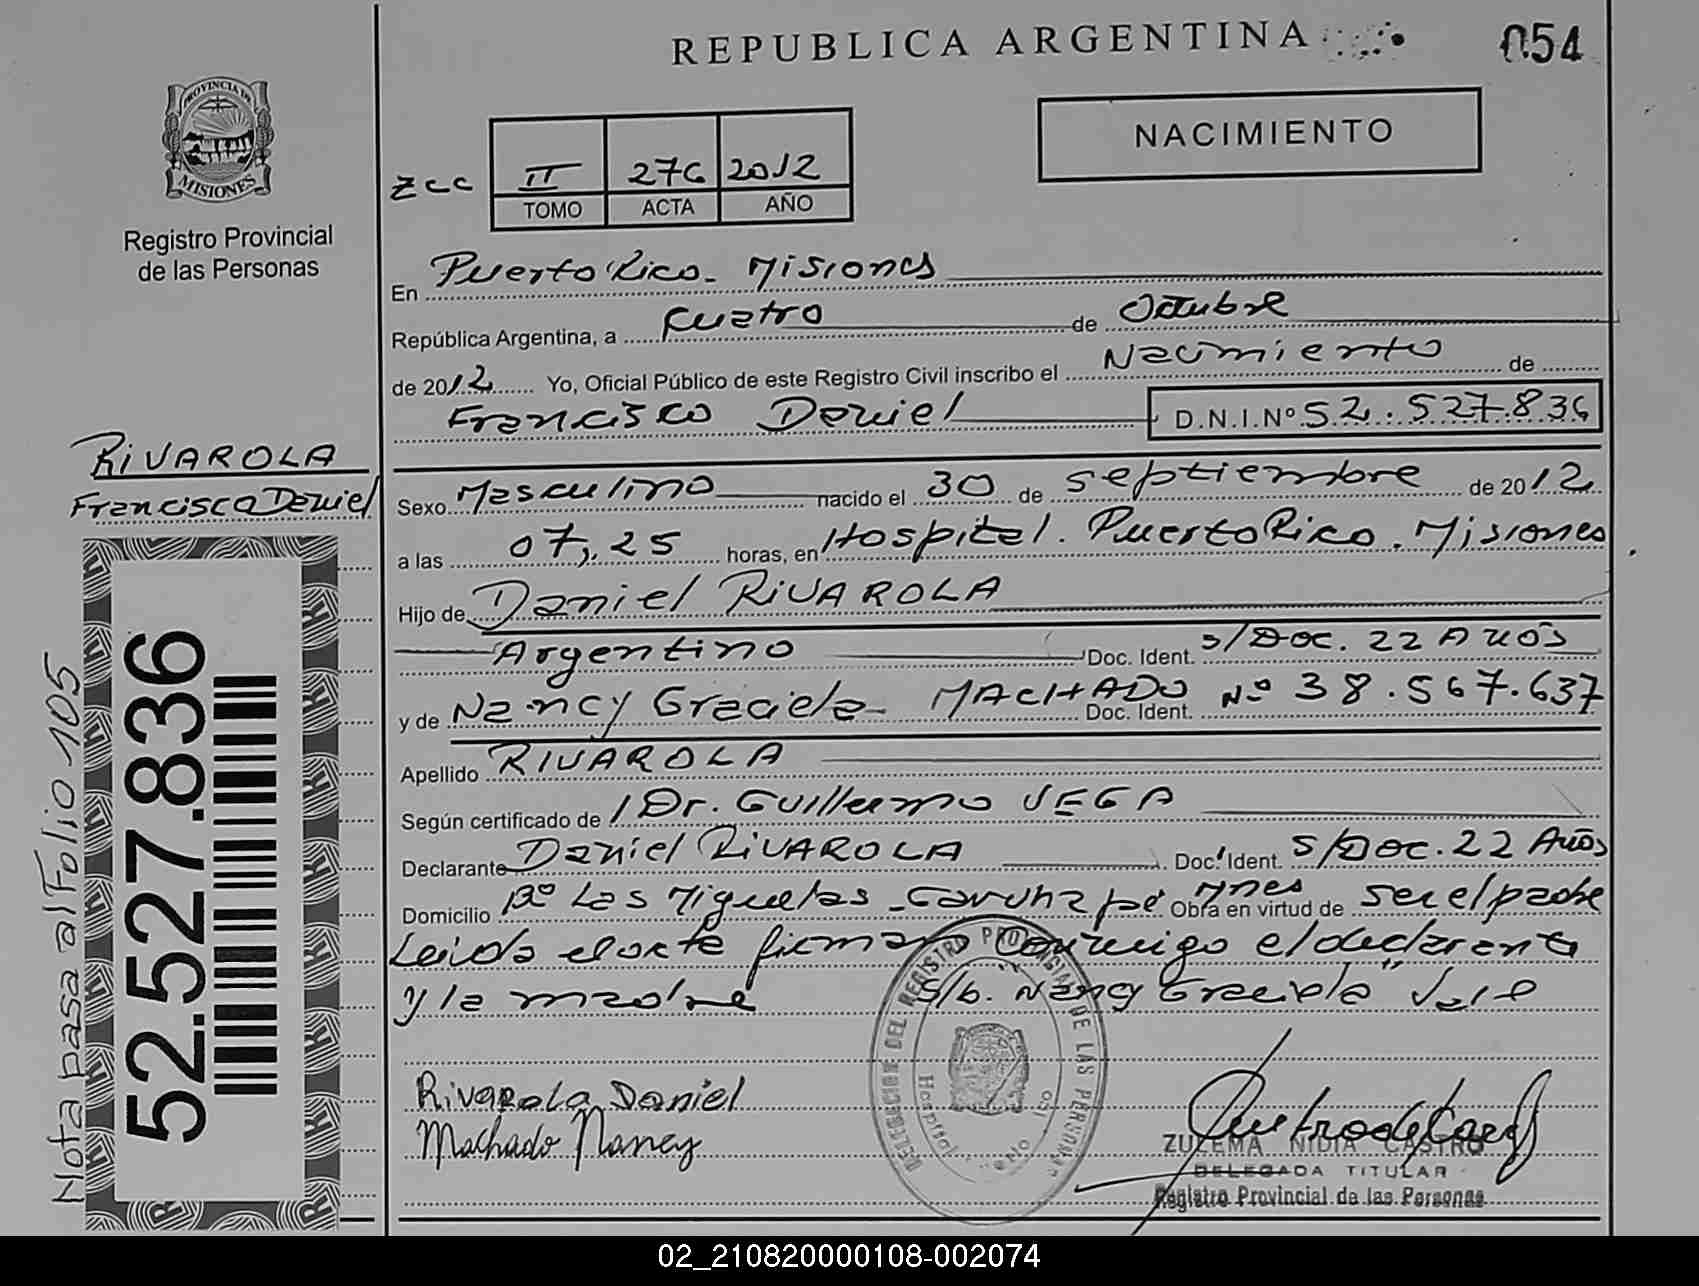 REPUBLICA ARGENTINA
054
PROVINCIA DE MISIONES
Registro Provincial
de las Personas
NACIMIENTO
zcc II 276 2012
TOMO ACTA AÑO
En Puerto Rico - Misiones
República Argentina, a Cuatro de Octubre
de 2012 Yo, Oficial Público de este Registro Civil inscribo el Nacimiento de
Francisco Daniel D.N.I.Nº 52.527.836
RIVAROLA
Francisco Daniel
Sexo Masculino nacido el 30 de septiembre de 2012
a las 07,25 horas, en Hospital. Puerto Rico. Misiones.
Hijo de Daniel RIVAROLA
Argentino Doc. Ident. s/Doc. 22 Años
y de Nancy Graciela MACHADO Doc. Ident. Nº 38.567.637
Apellido RIVAROLA
Según certificado de Dr. Guillermo VEGA
Declarante Daniel RIVAROLA Doc. Ident. S/Doc. 22 Años
Domicilio Bº Las Miguelas - Garuhapé Mnes Obra en virtud de ser el padre
Leida el acta firman conmigo el declarante
y la madre S/b. "Nancy Graciela" Vale
Rivarola Daniel
Machado Nancy
DELEGACION DEL REGISTRO PROVINCIAL DE LAS PERSONAS
Hospital
ZULEMA NIDIA CASTRO
DELEGADA TITULAR
Registro Provincial de las Personas
52.527.836
Nota pasa al Folio 105
02_210820000108-002074